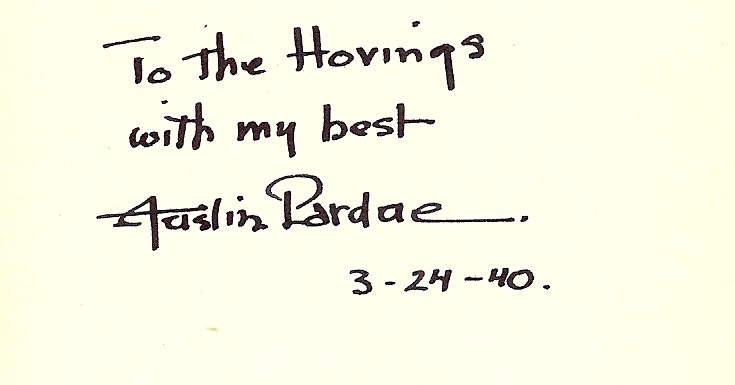 To the Hovings
with my best
Austin Pardue.
3-24-40.